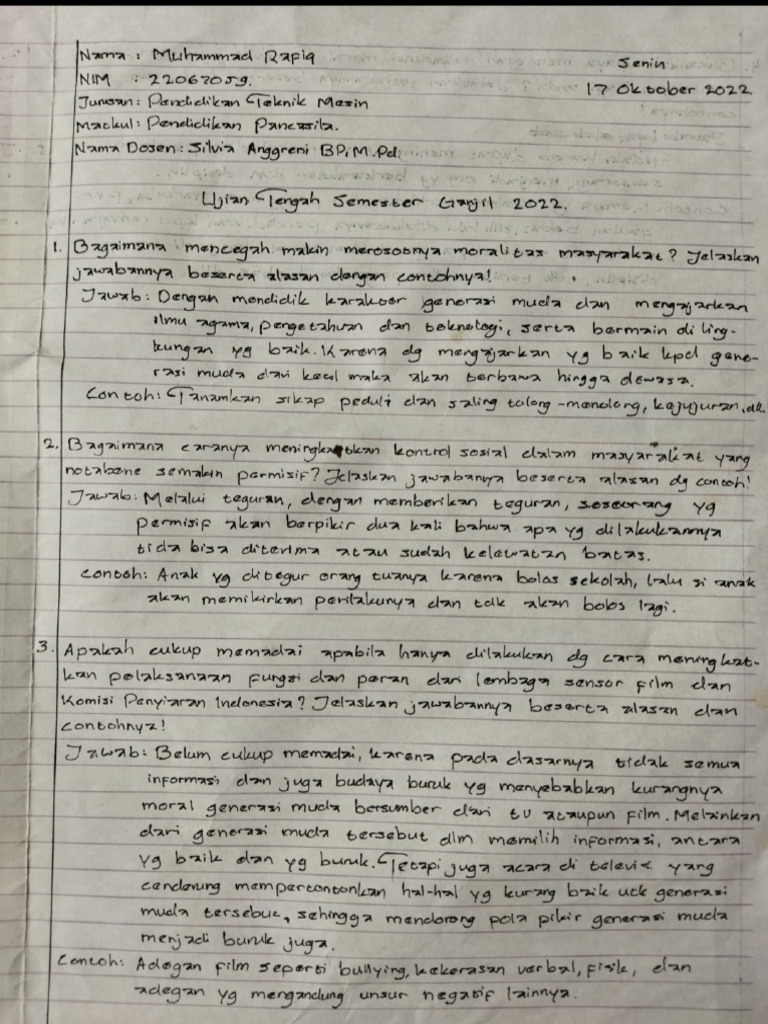 Nama : Muhammad Rafiq
Senin
NIM : 22067059.
17 Oktober 2022.
Jurusan: Pendidikan Teknik Mesin
Matkul: Pendidikan Pancasila.
Nama Dosen: Silvia Anggreni BP, M.Pd.
Ujian Tengah Semester Ganjil 2022.
1. Bagaimana mencegah makin merosotnya moralitas masyarakat? Jelaskan
jawabannya beserta alasan dengan contohnya!
Jawab: Dengan mendidik karakter generasi muda dan mengajarkan
ilmu agama, pengetahuan dan teknologi, serta bermain di ling-
kungan yg baik. Karena dg mengajarkan yg baik kpd gene-
rasi muda dari kecil maka akan terbawa hingga dewasa.
Contoh: Tanamkan sikap peduli dan saling tolong-menolong, kejujuran, dll.
2. Bagaimana caranya meningkatkan kontrol sosial dalam masyarakat yang
notabene semakin permisif? Jelaskan jawabanya beserta alasan dg contoh!
Jawab: Melalui teguran, dengan memberikan teguran, seseorang yg
permisif akan berpikir dua kali bahwa apa yg dilakukannya
tida bisa diterima atau sudah kelewatan batas.
Contoh: Anak yg ditegur orang tuanya karena bolos sekolah, lalu si anak
akan memikirkan perilakunya dan tdk akan bolos lagi.
3. Apakah cukup memadai apabila hanya dilakukan dg cara meningkat-
kan pelaksanaan fungsi dan peran dari lembaga sensor film dan
Komisi Penyiaran Indonesia? Jelaskan jawabannya beserta alasan dan
contohnya!
Jawab: Belum cukup memadai, karena pada dasarnya tidak semua
informasi dan juga budaya buruk yg menyebabkan kurangnya
moral generasi muda bersumber dari tv ataupun film. Melainkan
dari generasi muda tersebut dlm memilih informasi, antara
yg baik dan yg buruk. Tetapi juga acara di televisi yang
cenderung mempertontonkan hal-hal yg kurang baik utk generasi
muda tersebut, sehingga mendorong pola pikir generasi muda
menjadi buruk juga.
Contoh: Adegan film seperti bullying, kekerasan verbal, fisik, dan
adegan yg mengandung unsur negatif lainnya.